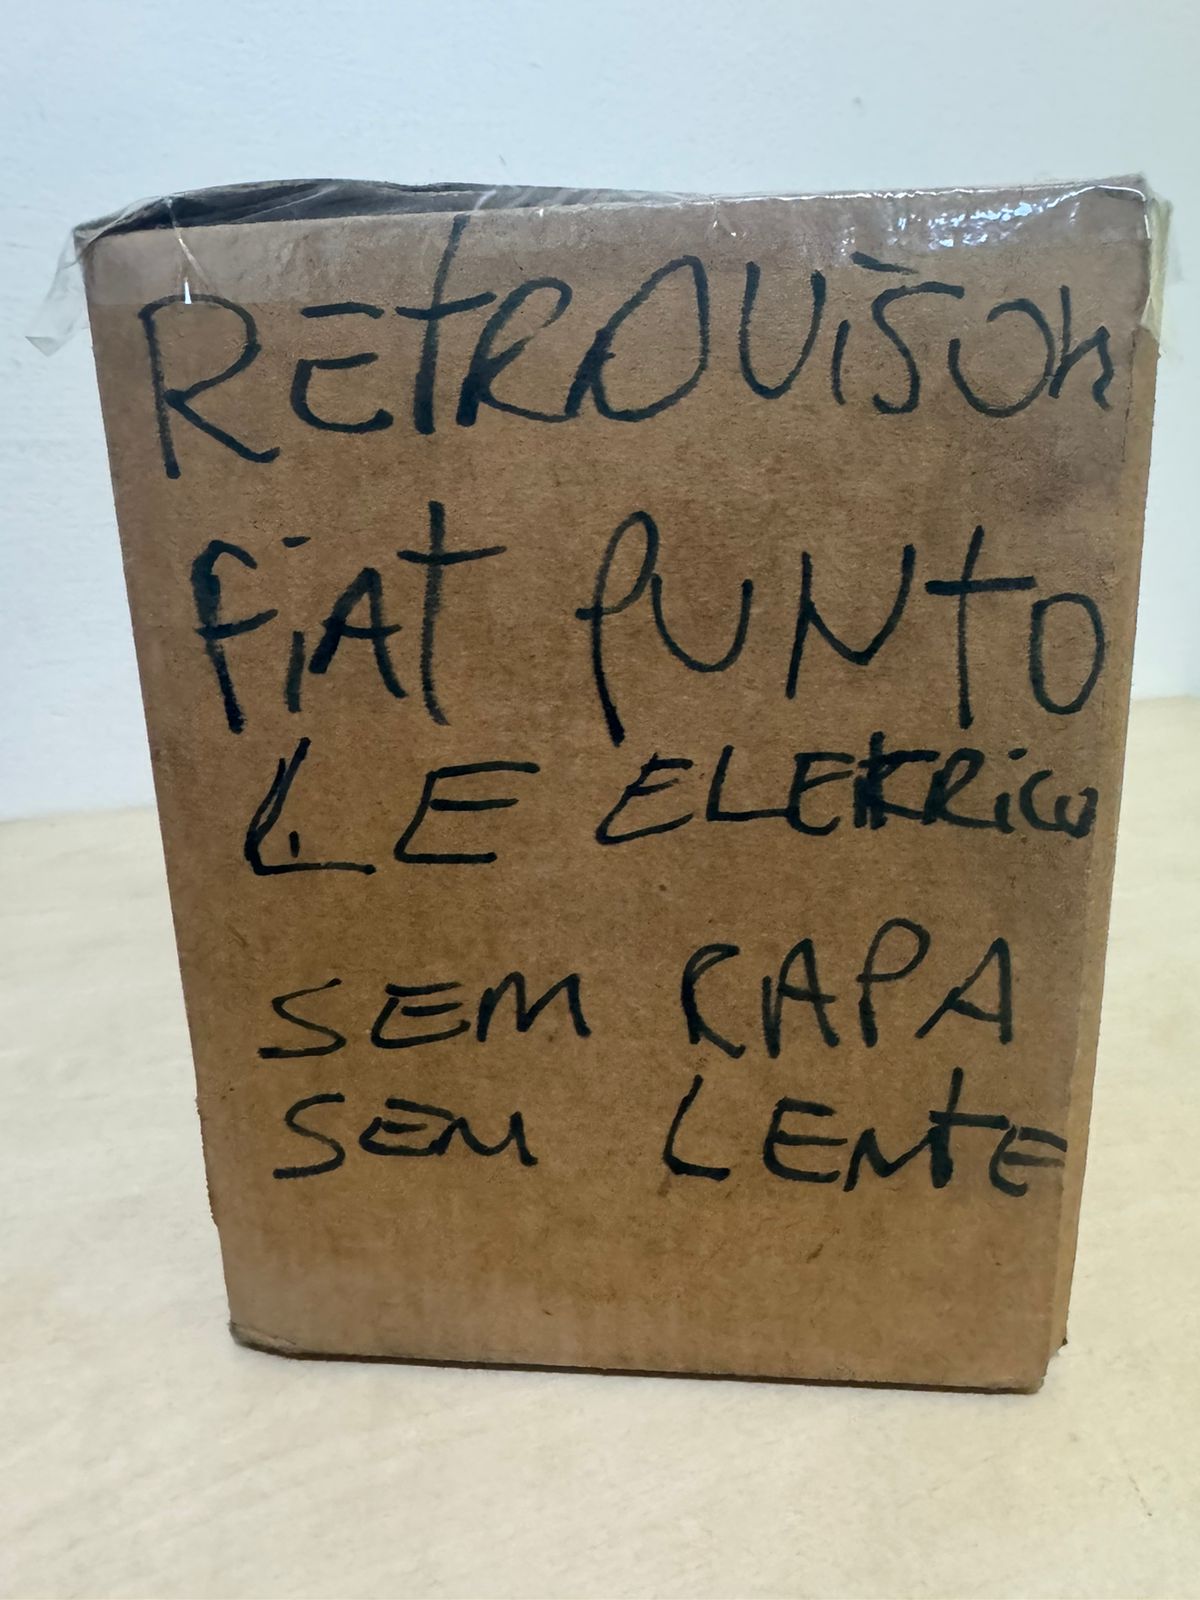 RETROVISOR
FIAT PUNTO
LE ELETRICO
SEM CAPA
SEM LENTE